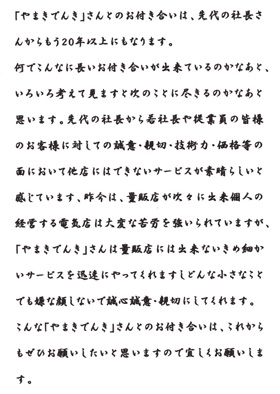 「やまきでんき」さんとのお付き合いは、先代の社長さ
んからもう20年以上にもなります。
何でこんなに長いお付き合いが出来ているのかなあと、
いろいろ考えて見ますと次のことに尽きるのかなあと
思います。先代の社長から若社長や従業員の皆様
のお客様に対しての誠意・親切・技術力・価格等の
面において他店にはできないサービスが素晴らしいと
感じています、昨今は、量販店が次々に出来個人の
経営する電気店は大変な苦労を強いられていますが、
「やまきでんき」さんは量販店には出来ないきめ細か
いサービスを迅速にやってくれますしどんな小さなこと
でも嫌な顔しないで誠心誠意・親切にしてくれます。
こんな「やまきでんき」さんとのお付き合いは、これから
もぜひお願いしたいと思いますので宜しくお願いしま
す。